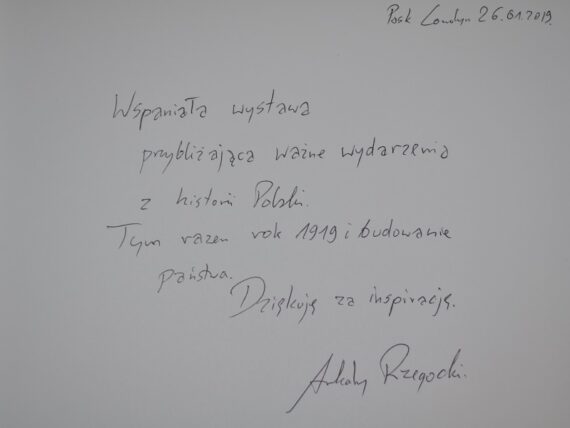 Posk Londyn 26.01.2019.
Wspaniała wystawa
przybliżająca ważne wydarzenia
z historii Polski.
Tym razem rok 1919 i budowanie
państwa.
Dziękuję za inspirację.
Arkady Rzegocki.